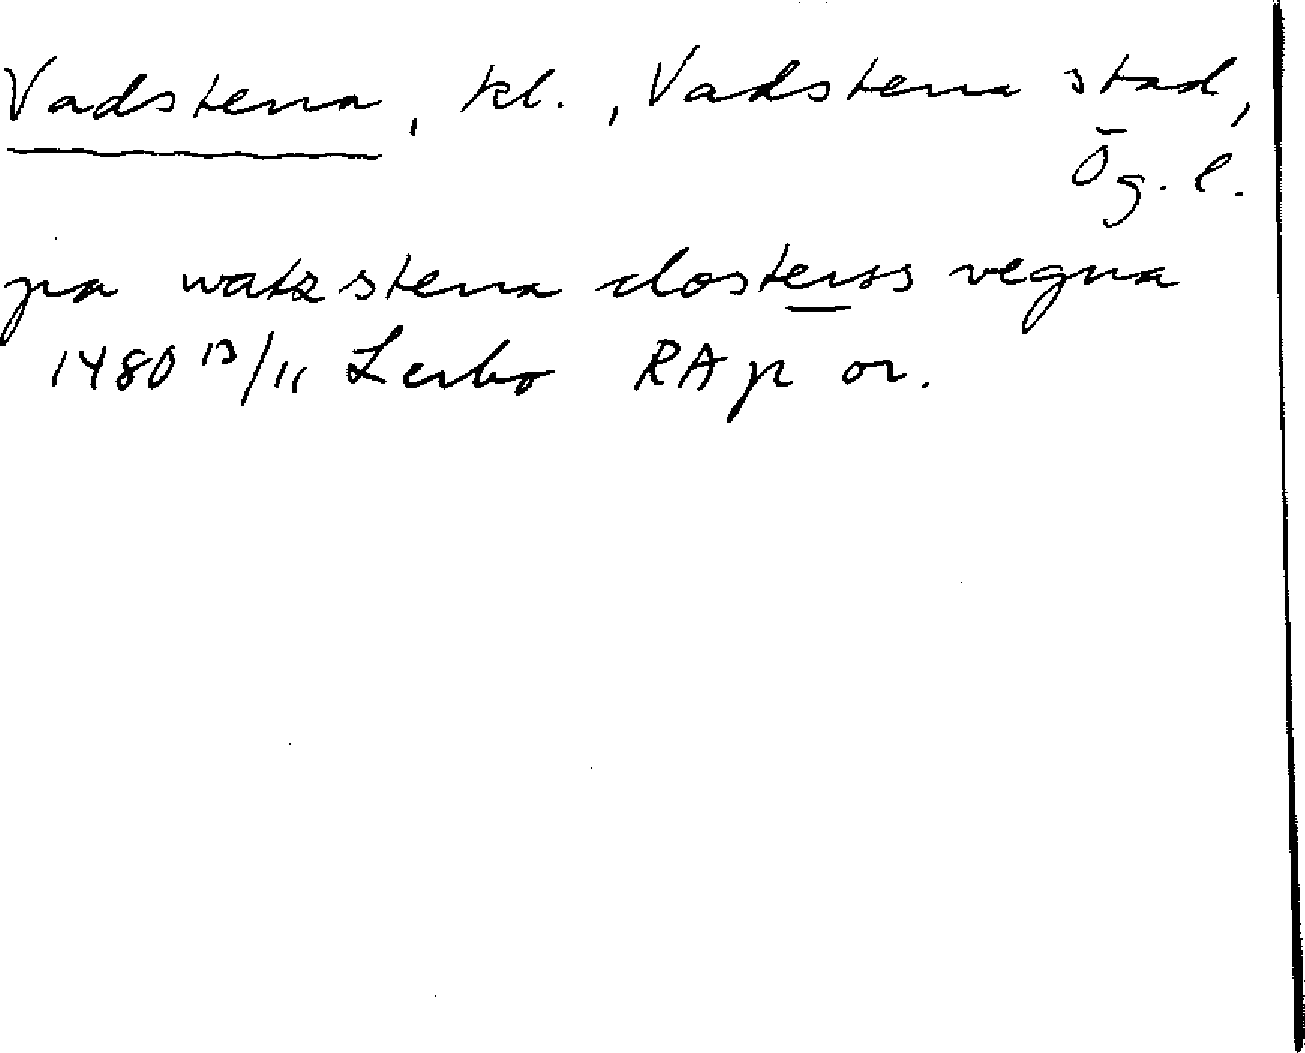 Vadstena, kl., Vadstena stad,
Ög. l.
pa watzstena closterss vegna
1480 13/11 Lerbo RAp or.